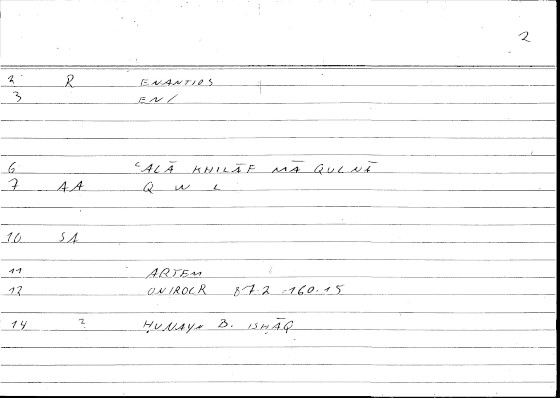 2
2 R ENANTIOS
3 EN/
6 ʿALĀ KHILĀF MĀ QULNĀ
7 AA Q W L
10 SA
11 ARTEM
12 ONIROCR 87.2 -160.15
14 2 ḤUNAYN B. ISḤĀQ